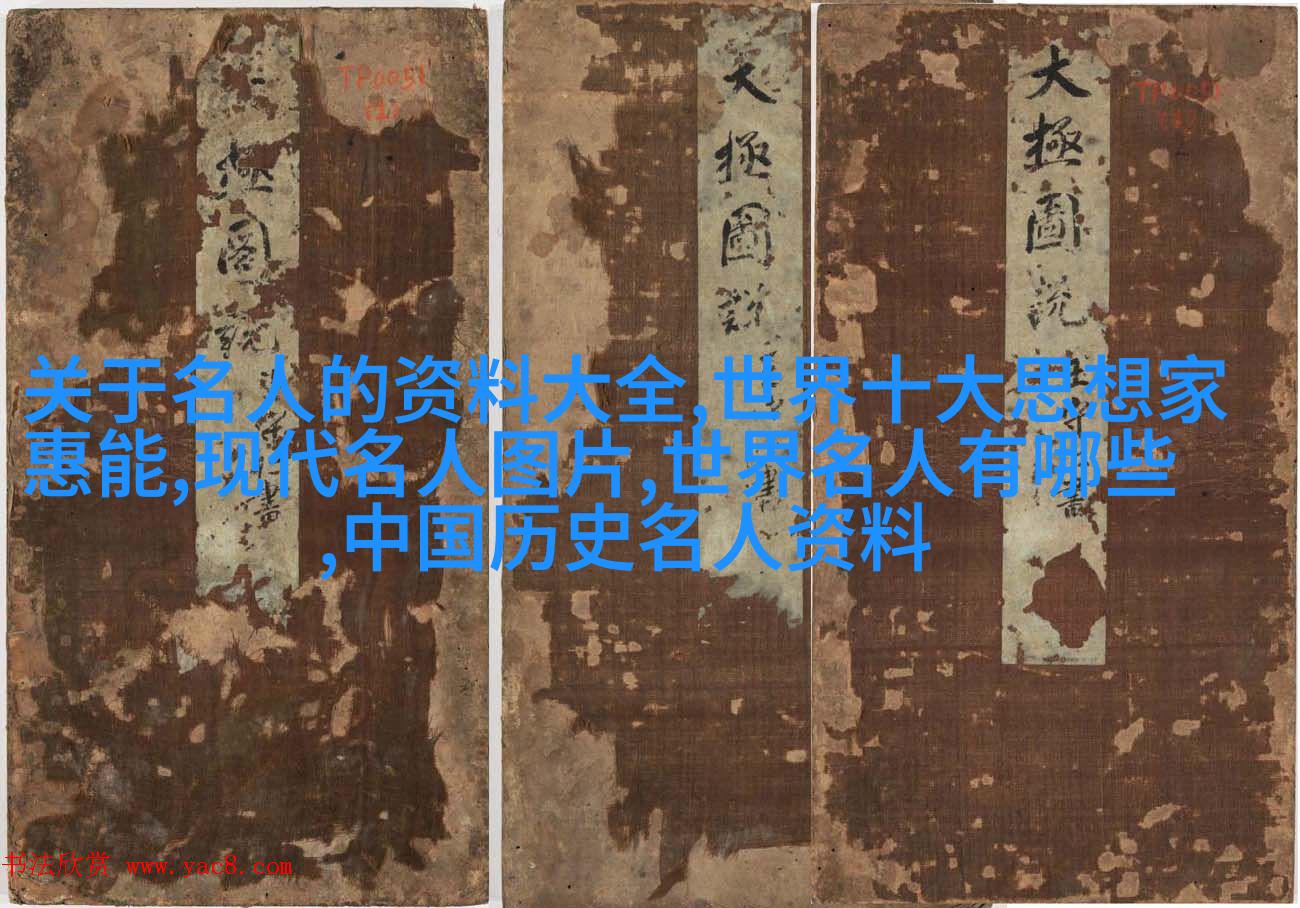 TP0051
(1)
極圖說
大極圖說
大極圖说
书
关于名人的资料大全,世界十大思想家
惠能,现代名人图片,世界名人有哪些
,中国历史名人资料
书法欣赏 www.yac8.com